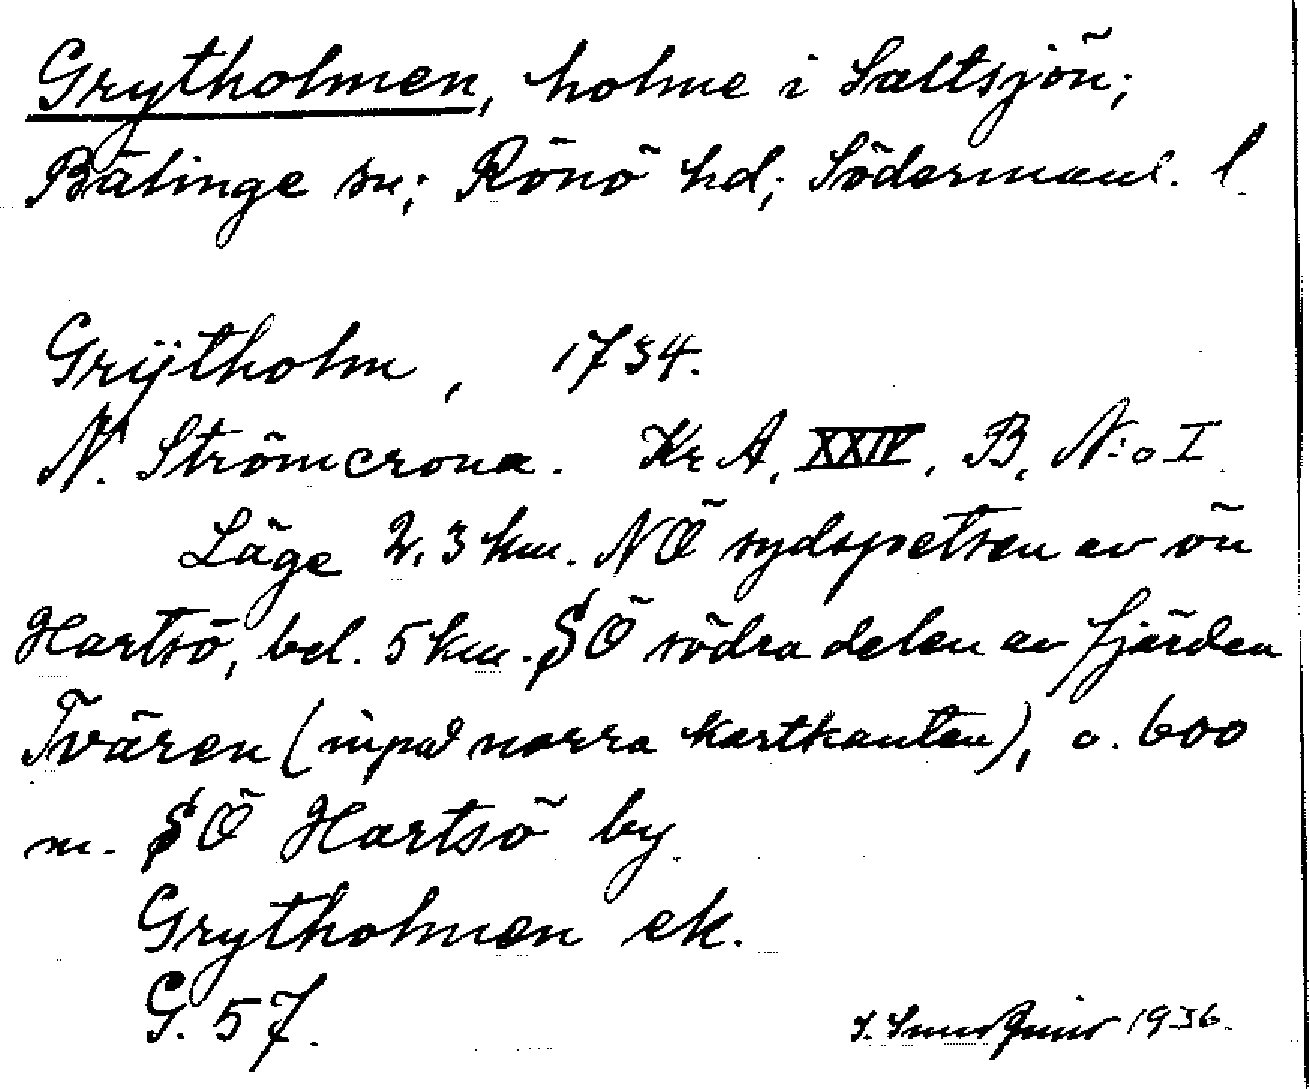 Grytholmen, holme i Saltsjön;
Bälinge sn; Rönö hd; Södermanl. l.
Grÿtholm, 1734.
N. Strömcrona. Kr A, XXIV, B, N:o I
Läge 2,3 km. NÖ sydspetsen av ön
Hartsö, bel. 5 km. SÖ södra delen av fjärden
Tvären (inpå norra kartkanten), o. 600
m. SÖ Hartsö by.
Grytholmen ek.
G. 57.
1936.